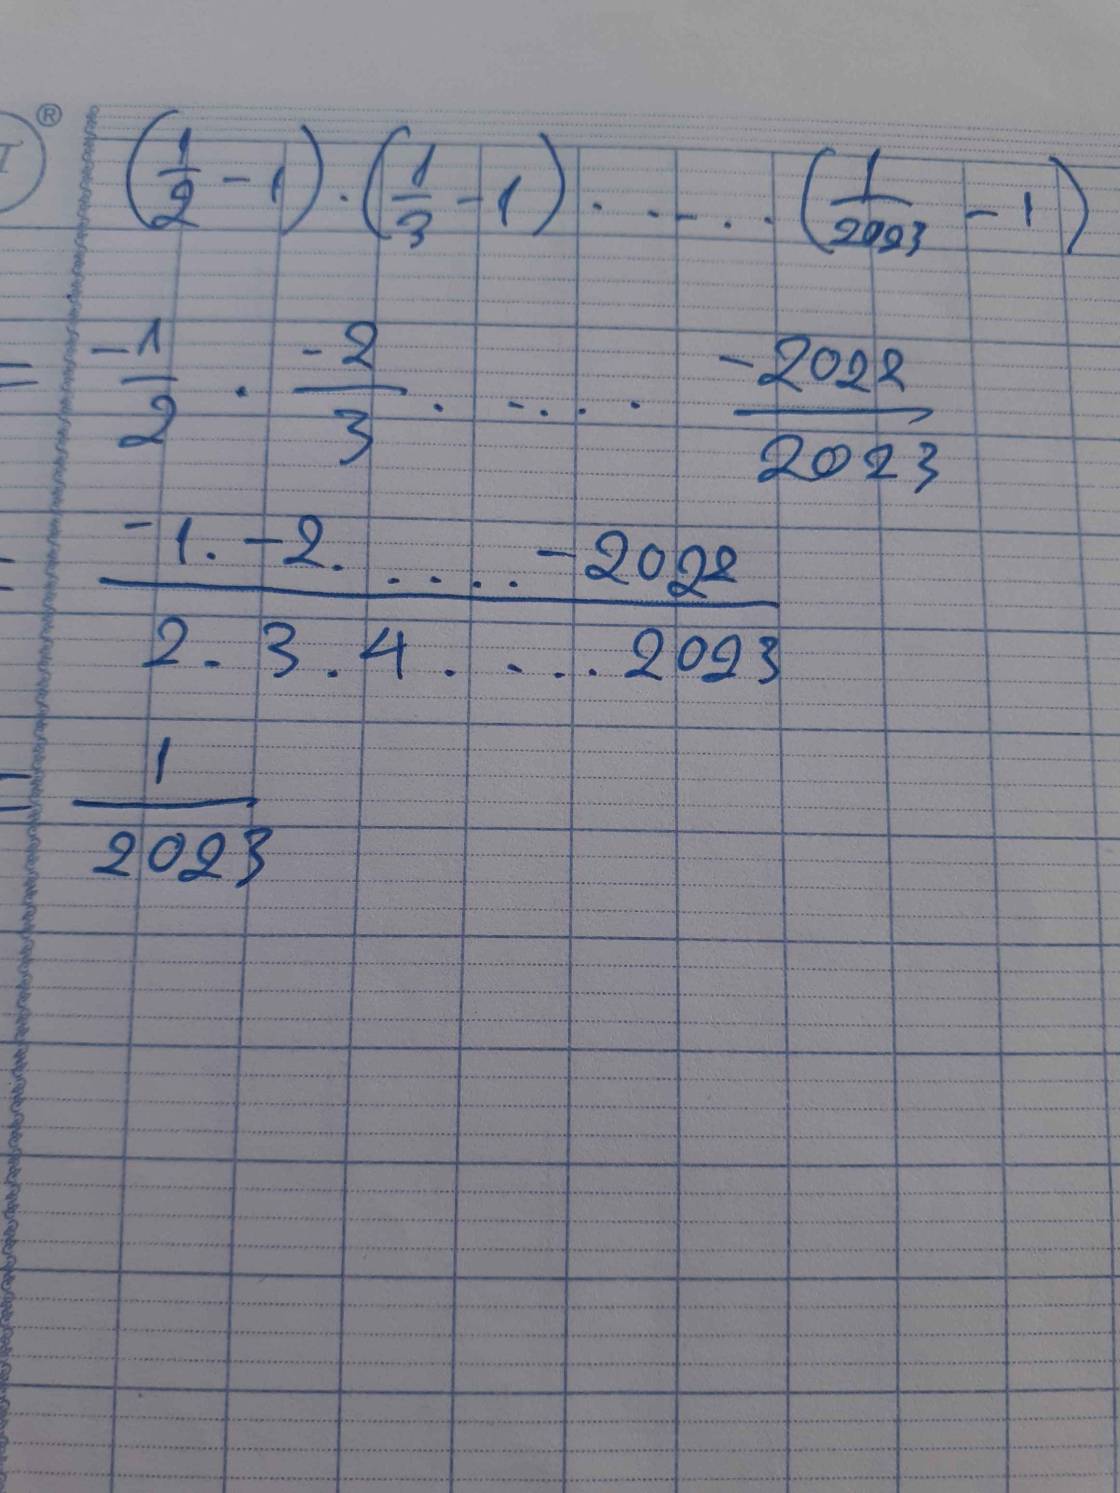 ®
(1/2 - 1) . (1/3 - 1) . . . . . . (1/2023 - 1)
= -1/2 . -2/3 . . . . . . -2022/2023
= -1 . -2 . . . . . -2022 / 2 . 3 . 4 . . . . . 2023
= 1/2023